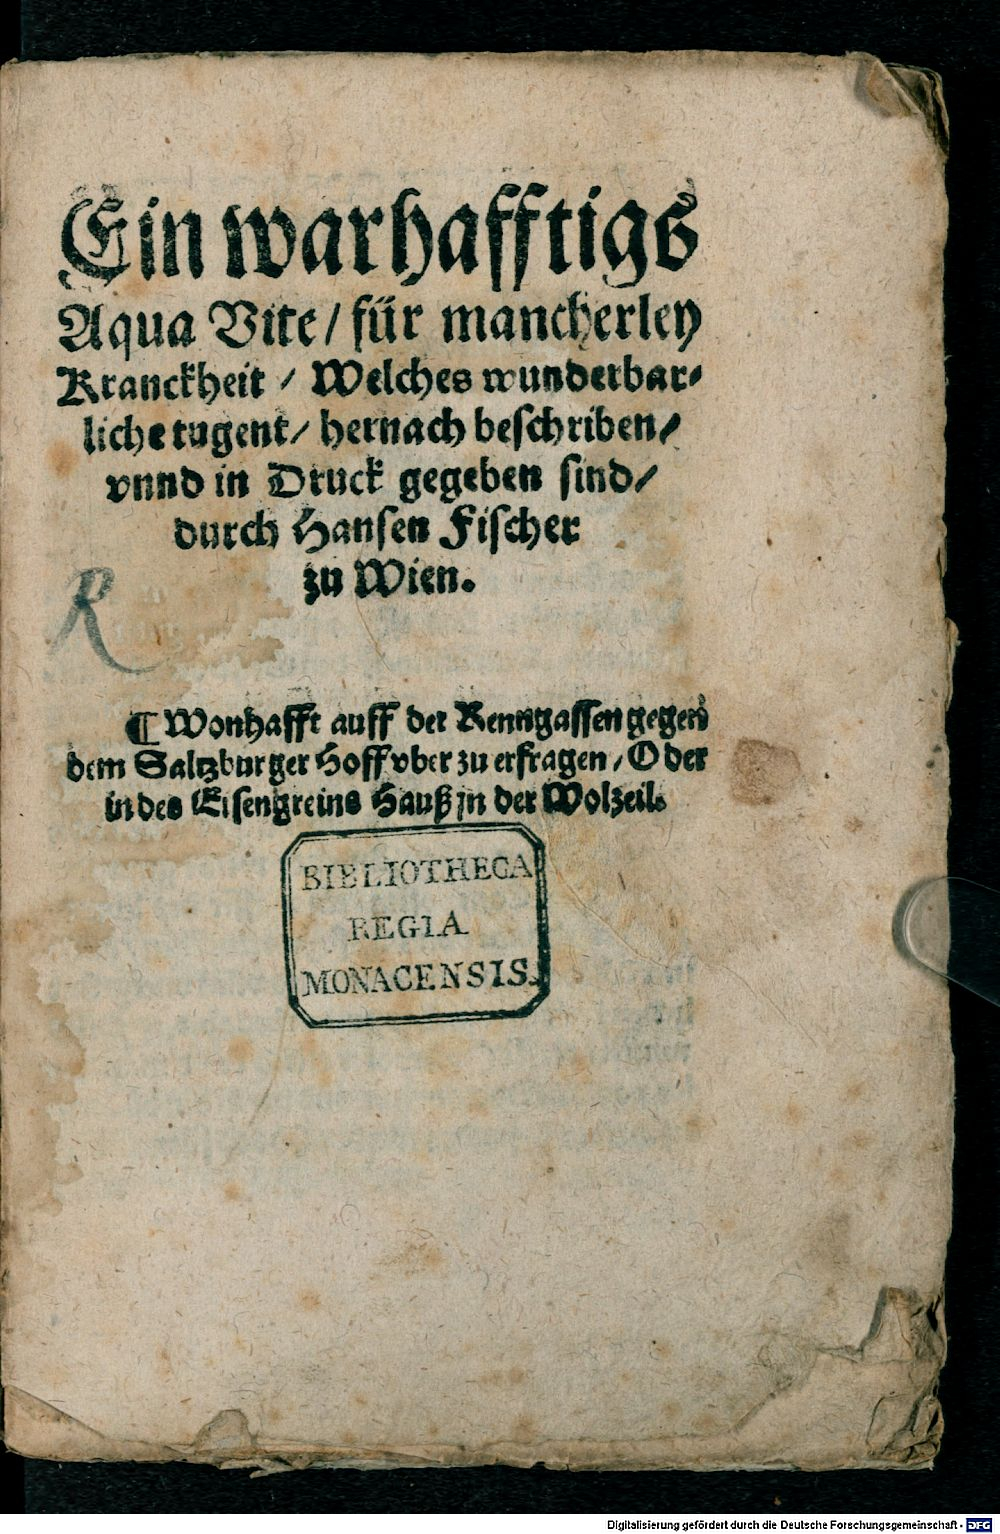 Ein warhafftigs
Aqua Vite / für mancherley
Kranckheit / Welches wunderbar⸗
liche tugent / hernach beschriben /
vnnd in Druck gegeben sind /
durch Hansen Fischer
zu Wien.
R
¶ Wonhafft auff der Renngassen gegen
dem Saltzburger Hoff vber zu erfragen / Oder
in des Eisengreins Hauß in der Wolzeil.
BIBLIOTHECA
REGIA
MONACENSIS.
Digitalisierung gefördert durch die Deutsche Forschungsgemeinschaft - DFG